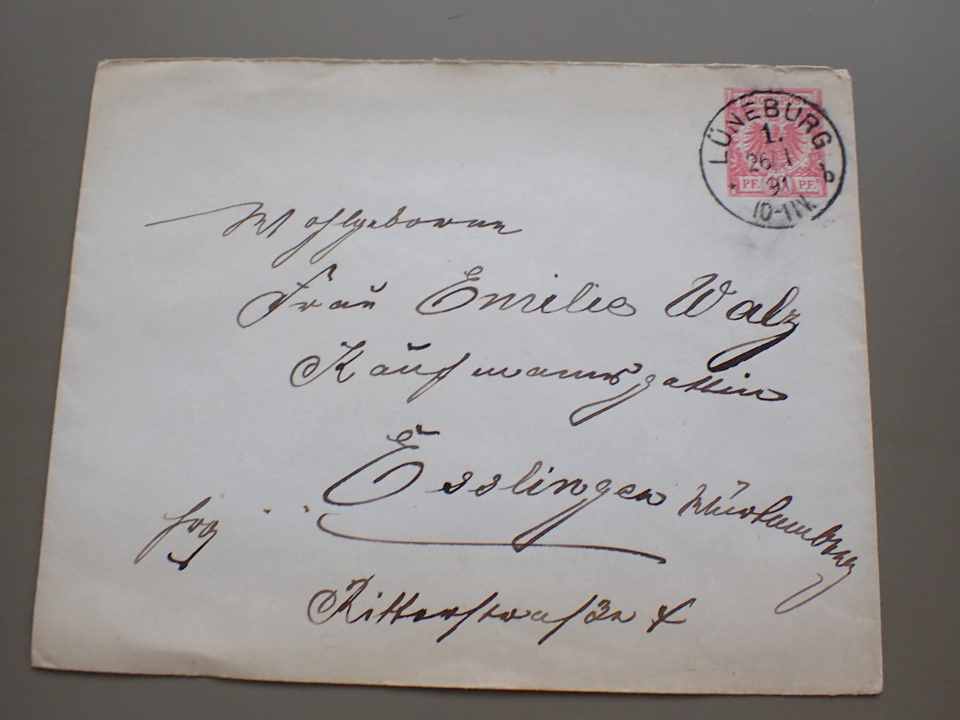 LÜNEBURG
1.
26 1
91
10-11N.
b
PF. PF.
Wohlgeboren
Frau Emilie Walz
Kaufmannsgattin
Esslingen Würtemberg
frei
Ritterstraße 4